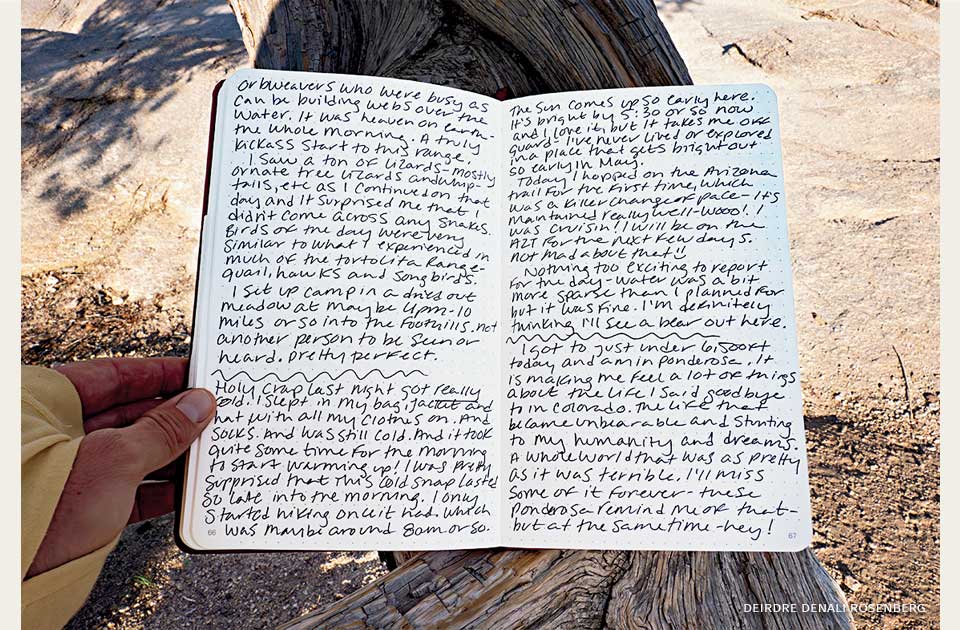 Orbweavers who were busy as
can be building webs over the
water. It was heaven on earth-
the whole morning. A truly
kickass start to this range.
I saw a ton of lizards- mostly
ornate tree lizards and whip-
tails, etc as I continued on that
day and it surprised me that I
didn't come across any snakes.
Birds of the day were very
similar to what I experienced in
much of the tortolita Range-
quail, hawks and songbirds.
I set up camp in a dried out
meadow at maybe 4pm-10
miles or so into the foothills. not
another person to be seen or
heard. pretty perfect.
Holy Crap last night got really
cold. I slept in my bag, jacket and
hat with all my clothes on. And
socks. And was still cold. And it took
quite some time for the morning
to start warming up! I was pretty
surprised that this cold snap lasted
so late into the morning. I only
started hiking once it had. Which
was maybe around 8am or so.
66
The sun comes up so early here.
It's bright by 5:30 or so now
and I love it, but it takes me off
guard- I've never lived or explored
in a place that gets bright out
so early in May.
Today I hopped on the Arizona
trail for the first time, which
was a killer change of pace- It's
maintained really well- wooo! I
was cruisin! I will be on the
AZT for the next few days.
not mad about that
Nothing too exciting to report
for the day- water was a bit
more sparse than I planned for
but it was fine. I'm definitely
thinking I'll see a bear out here.
I got to just under 6,500ft
today and am in ponderosa. It
is making me feel a lot of things
about the life I said goodbye
to in Colorado. The life that
became unbearable and stunting
to my humanity and dreams.
A whole world that was as pretty
as it was terrible. I'll miss
some of it forever- these
ponderosa remind me of that-
but at the same time- hey!
67
DEIRDRE DENALI ROSENBERG